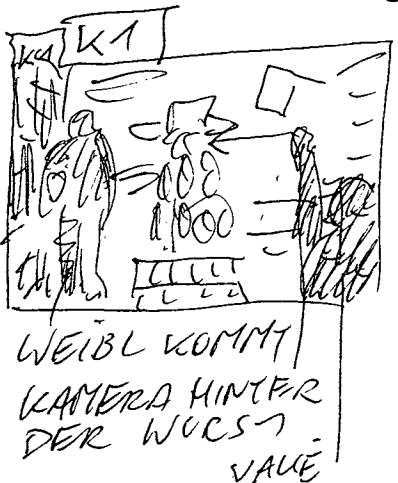 K1
K1
WEIBL KOMMT
KAMERA HINTER
DER WURST